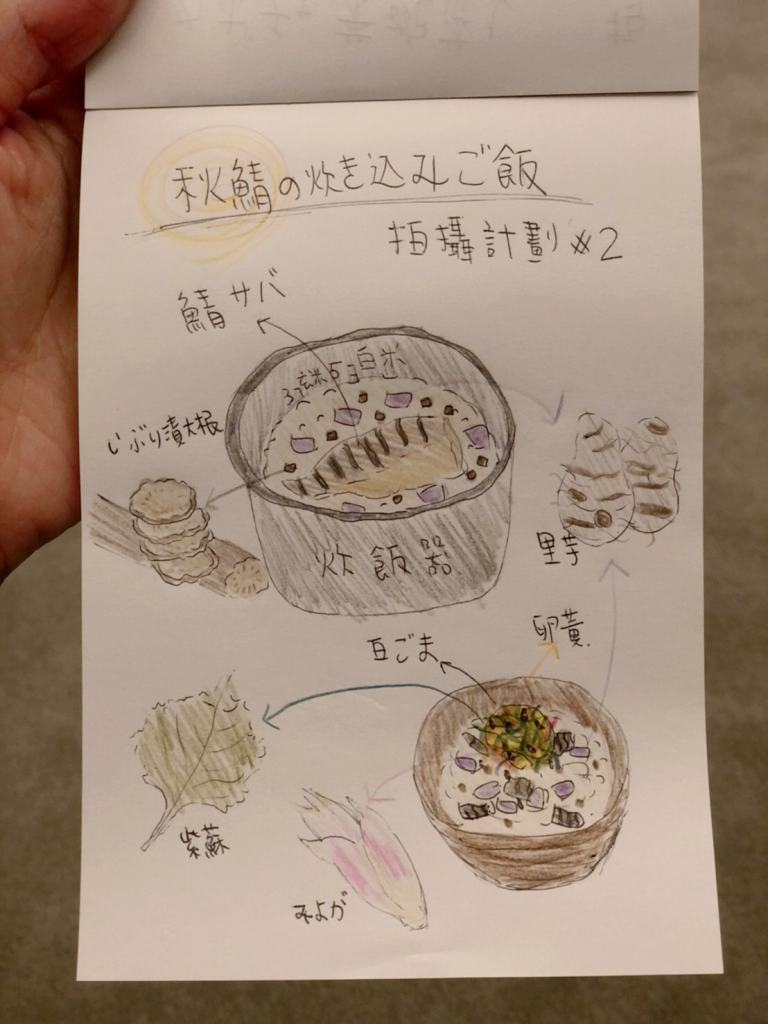 秋鯖の炊き込みご飯
拍攝計劃 #2
鯖サバ
白米
いぶり漬大根
炊飯器
里芋
卵黄
白ごま
紫蘇
みょが